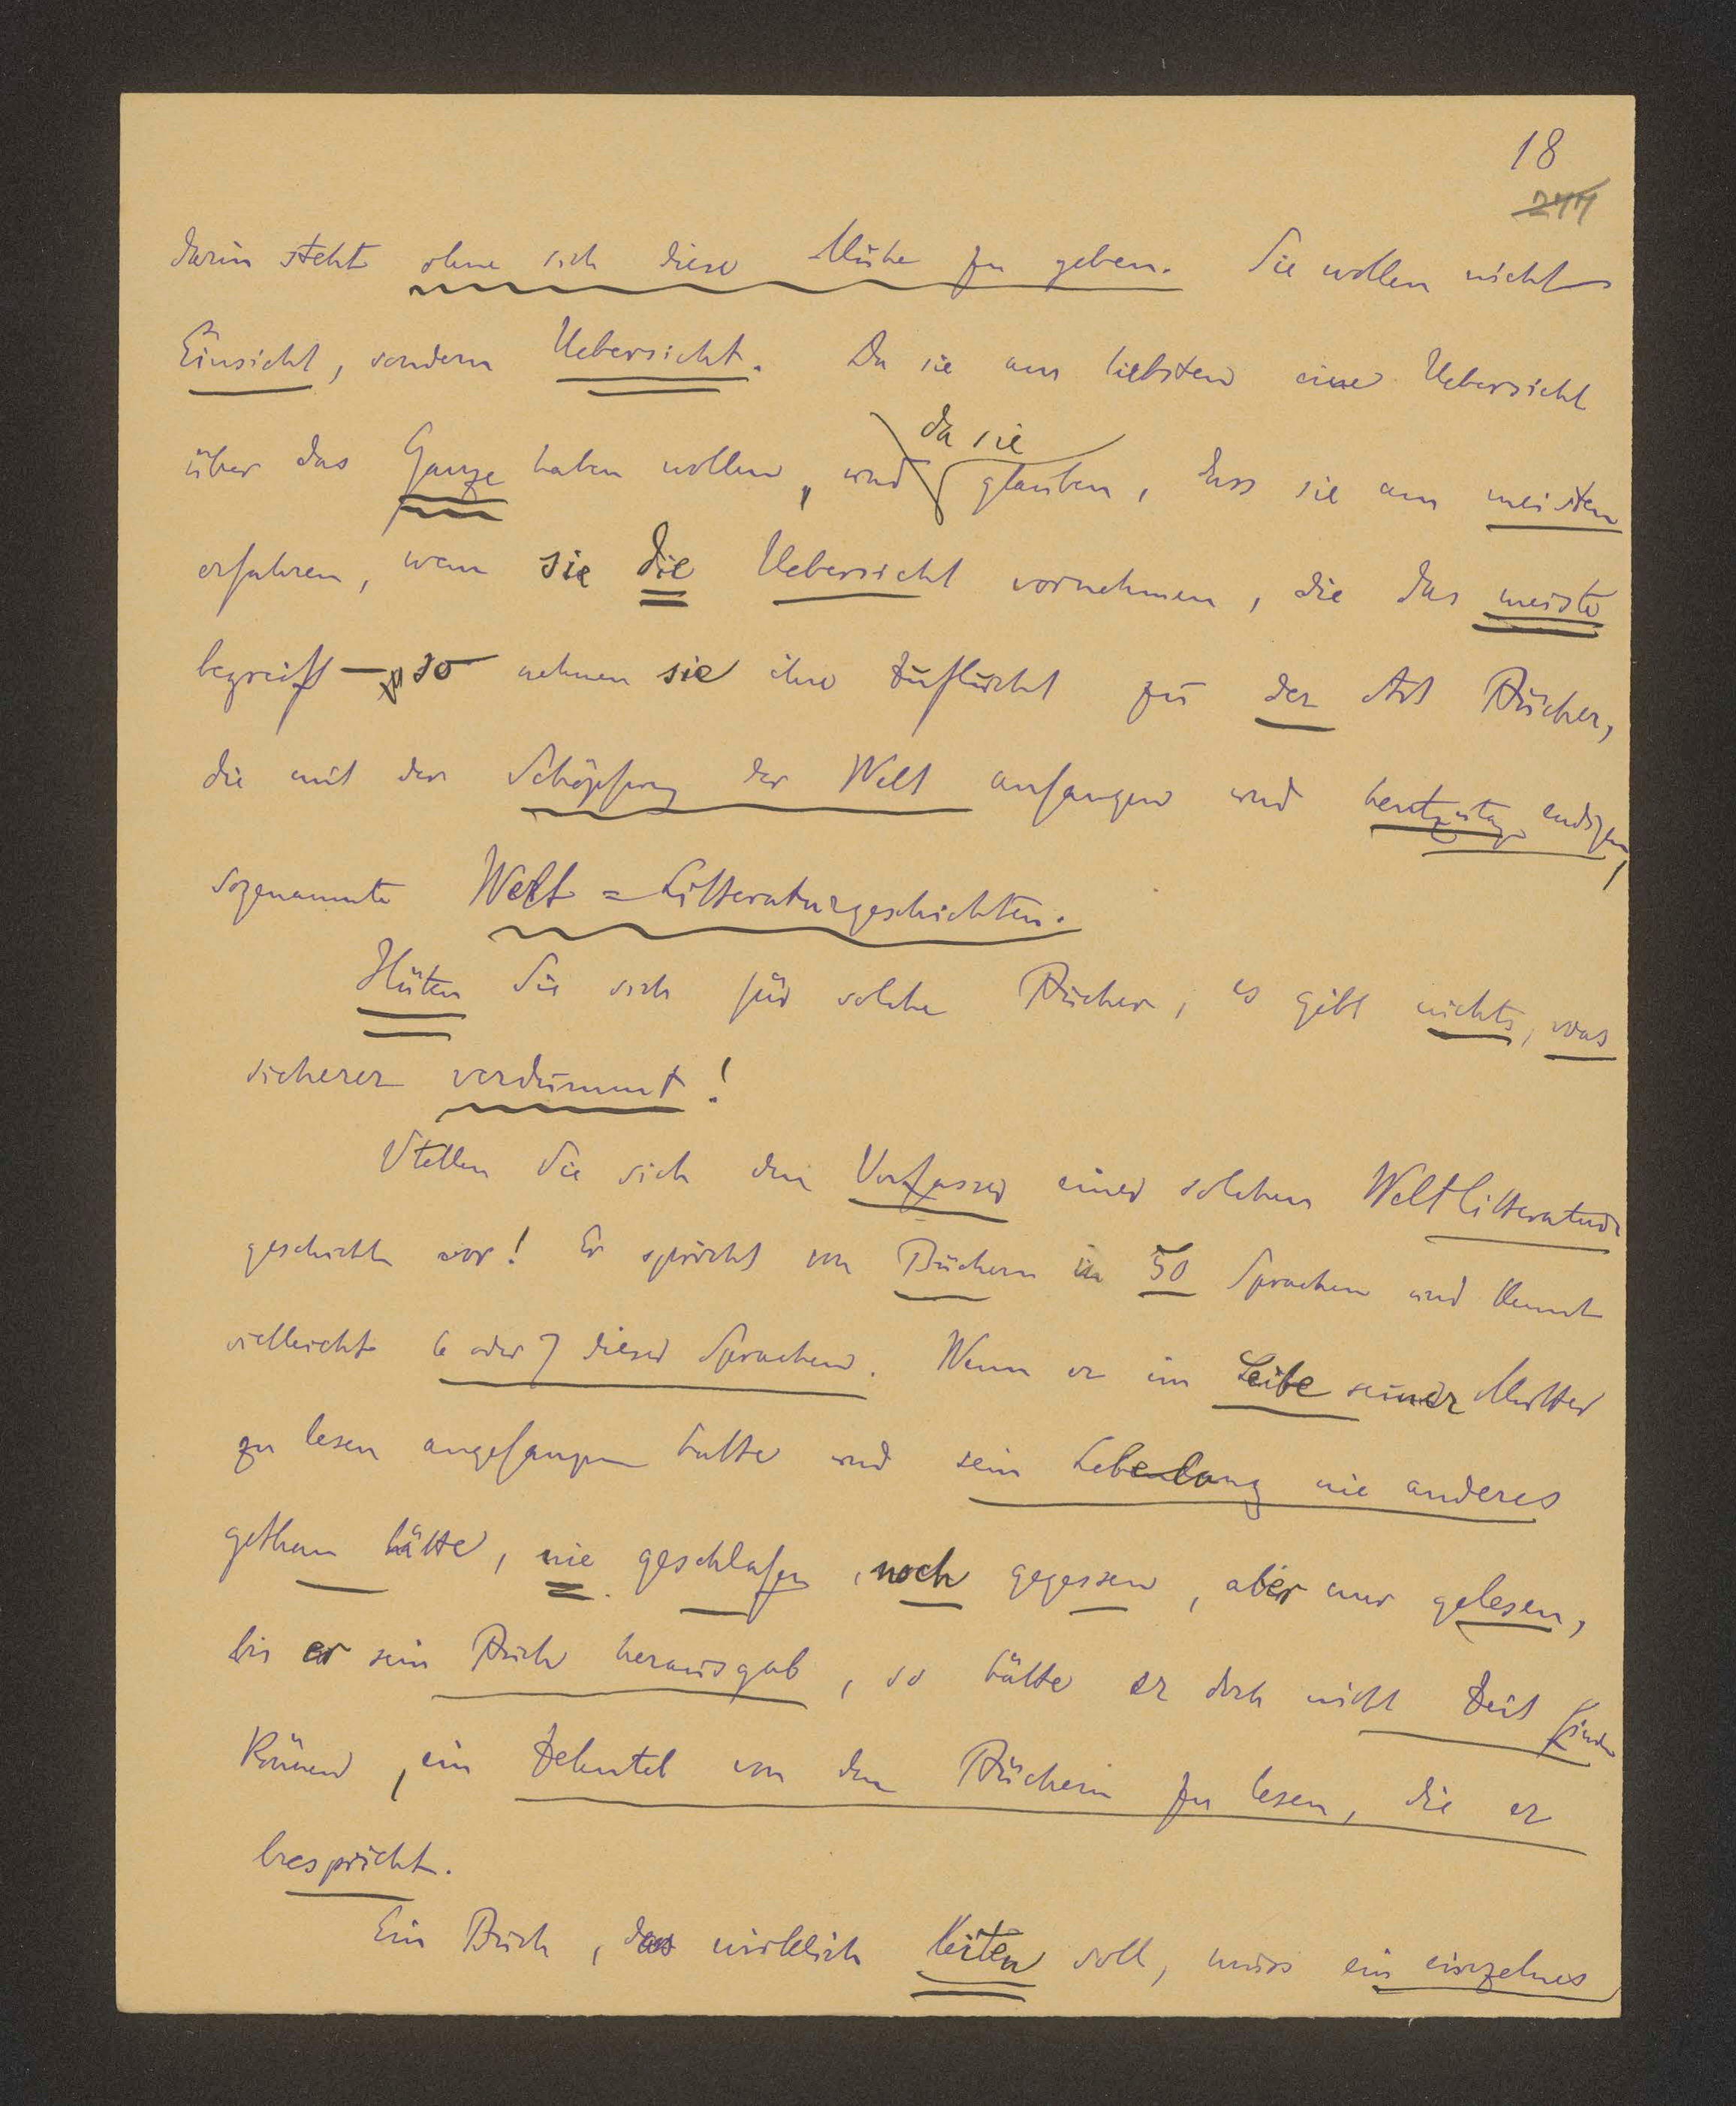 18
244
darin steht ohne sich diese Mühe zu geben. Sie wollen nicht
Einsicht, sondern Uebersicht. Da sie am liebsten eine Uebersicht
da sie
über das Ganze haben wollen, und glauben, dass sie am meisten
erfahren, wenn sie die Uebersicht vornehmen, die das meiste
begreift — so nehmen sie ihre Zuflucht zu der Art Bücher,
die mit der Schöpfung der Welt anfangen und heutzutage endigen,
sogenannte Welt=Litteraturgeschichten.
Hüten Sie sich für solche Bücher, es gibt nichts, was
sicherer verdummt!
Stellen Sie sich den Verfasser einer solchen Weltlitteratur
geschichte vor! Er spricht von Büchern in 50 Sprachen und kennt
vielleicht 6 oder 7 dieser Sprachen. Wenn er im Leibe seiner Mutter
zu lesen angefangen hätte und sein Lebenlang nie anderes
gethan hätte, nie geschlafen, noch gegessen, aber nur gelesen,
bis er sein Buch herausgab, so hätte er doch nicht Zeit finden
können, ein Zehntel von den Büchern zu lesen, die er
bespricht.
Ein Buch, das wirklich leiten soll, muss ein einzelnes